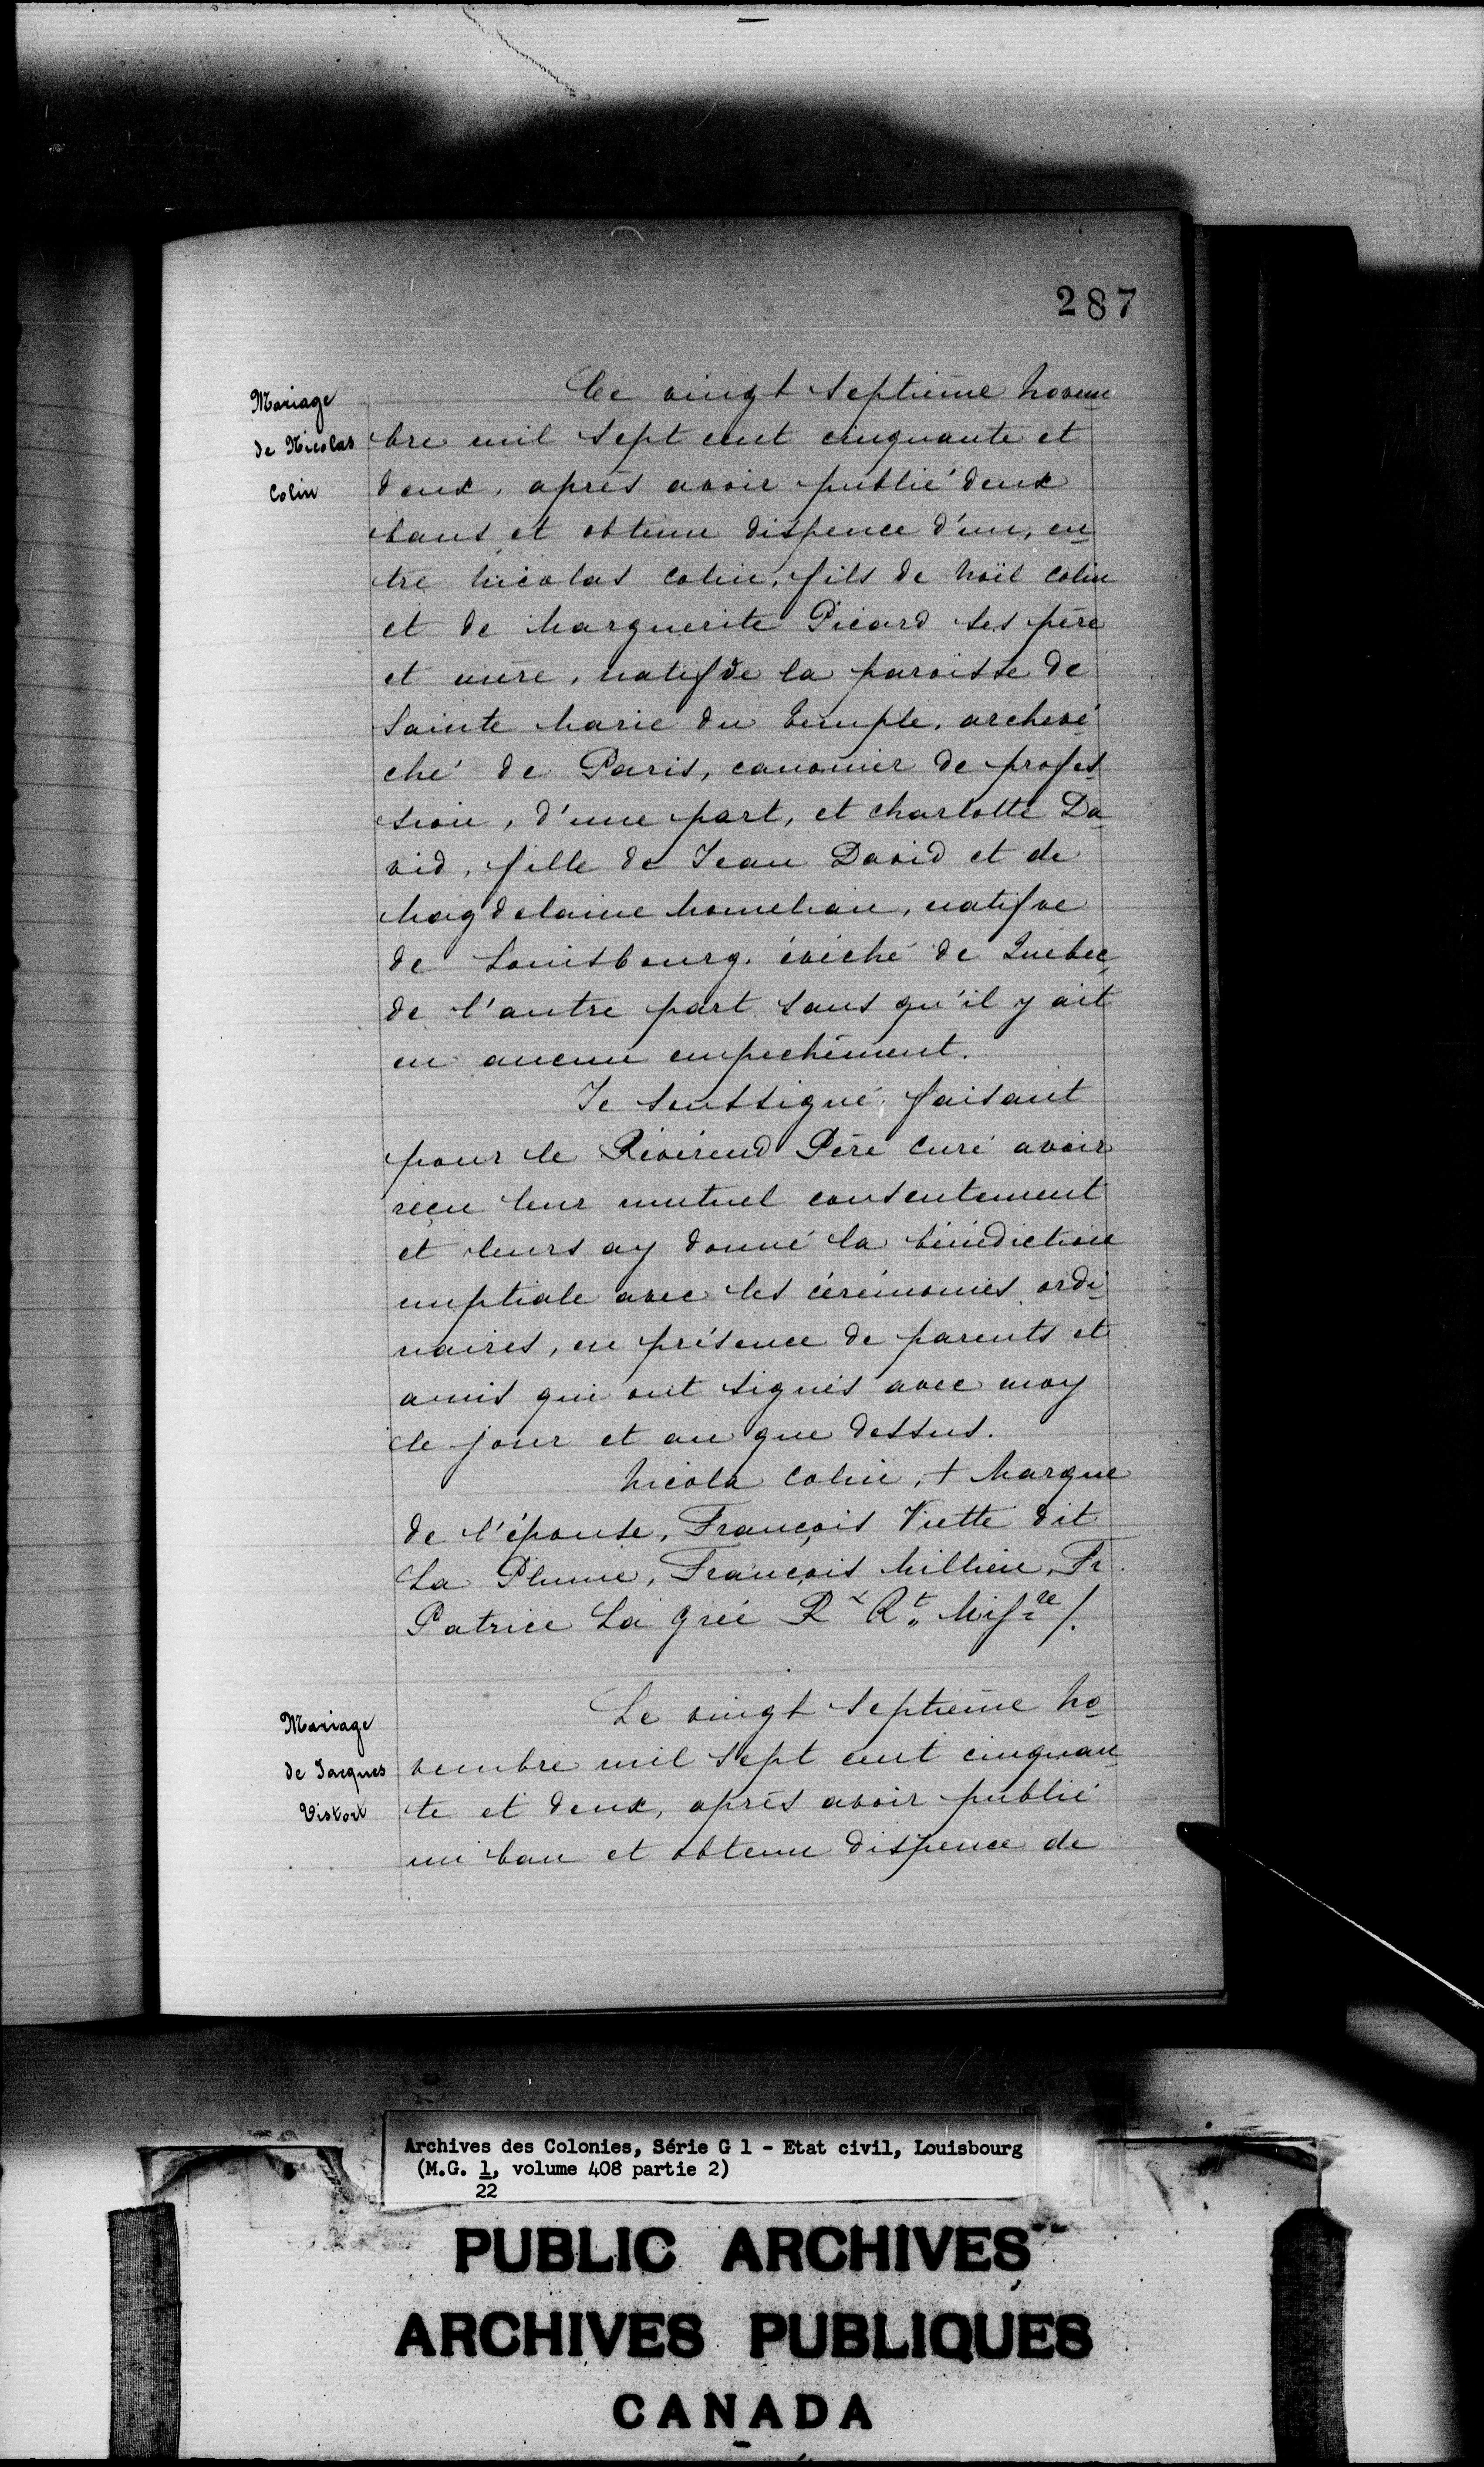 287
Mariage
de Nicolas
Colin
Ce vingt septième novem
bre mil sept cent cinquante et
deux, après avoir publié deux
bans et obtenu dispence d'un, en
tre Nicolas Colin, fils de Noël Colin
et de Marguerite Picard ses père
et mère, natif de la paroisse de
Sainte Marie du Temple, archevé
ché de Paris, canonier de profes
sion, d'une part, et Charlotte Da
vid, fille de Jean David et de
Magdelaine, natifve
de Louisbourg, évêché de Québec
de l'autre part sans qu'il y ait
eu aucun empechement.
Je soussigné, faisant
pour le Révérend Père Curé avoir
reçu leur mutuel consentement
et leurs ay donné la bénédiction
nuptiale avec les cérémonies ordi
naires, en présence de parents et
amis qui ont signés avec moy
le jour et an que dessus.
Nicola Colin, + Marque
de l'épouse, François Viette dit
La Plume, François Millien, Fr.
Patrice La Grée Rx Rt. Misre /.
Mariage
de Jacques
Vistort
Le vingt septième no
vembre mil sept cent cinquan
te et deux, après avoir publié
un ban et obtenu dispence de
Archives des Colonies, Série G 1 - Etat civil, Louisbourg
(M.G. 1, volume 408 partie 2)
22
PUBLIC ARCHIVES
ARCHIVES PUBLIQUES
CANADA